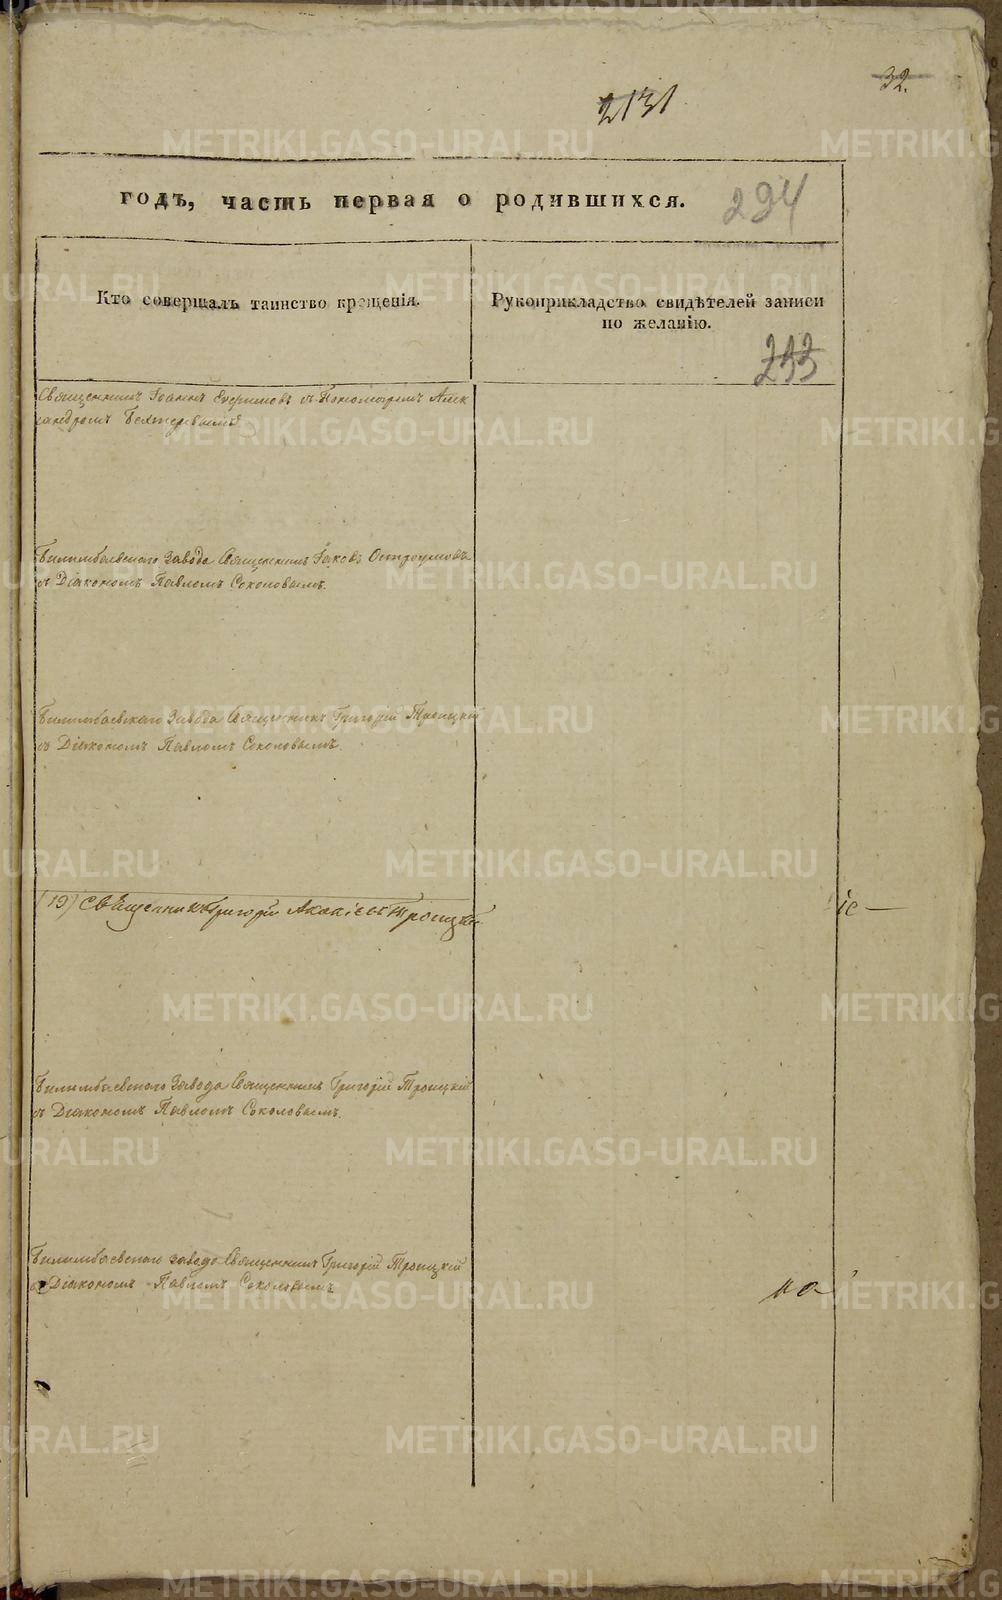 32.
2131
годъ, часть первая о родившихся.
294
Кто совершалъ таинство крещенія.
Рукоприкладство свидѣтелей записи
по желанію.
233
Священникъ Іоаннъ Ефимовъ съ Пономаремъ Алек
сандромъ
Билимбаевскаго Завода Священникъ Іаковъ Остроумовъ
съ Діакономъ Павломъ Соколовымъ.
Билимбаевскаго Завода Священникъ Григорій Троицкій
съ Діакономъ Павломъ Соколовымъ.
(19) Священникъ Григорій Троицкій
іе —
Билимбаевскаго Завода Священникъ Григорій Троицкій
съ Діакономъ Павломъ Соколовымъ.
Билимбаевскаго завода Священникъ Григорій Троицкій
съ Діакономъ Павломъ Соколовымъ
на
METRIKI.GASO-URAL.RU